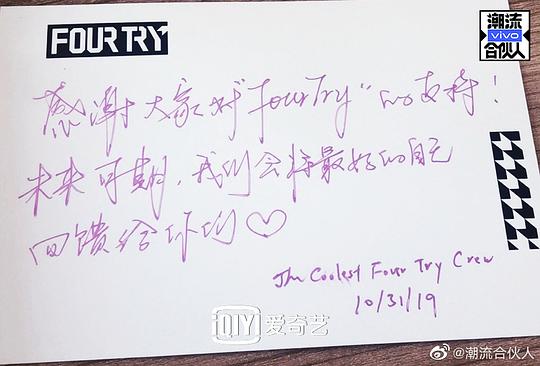 FOURTRY
潮流
vivo
合伙人
感谢大家对"FourTry"的支持！
未来可期，我们会将最好的自己
回馈给你们♡
The Coolest Four Try Crew
10/31/19
iQIYI 爱奇艺
@潮流合伙人